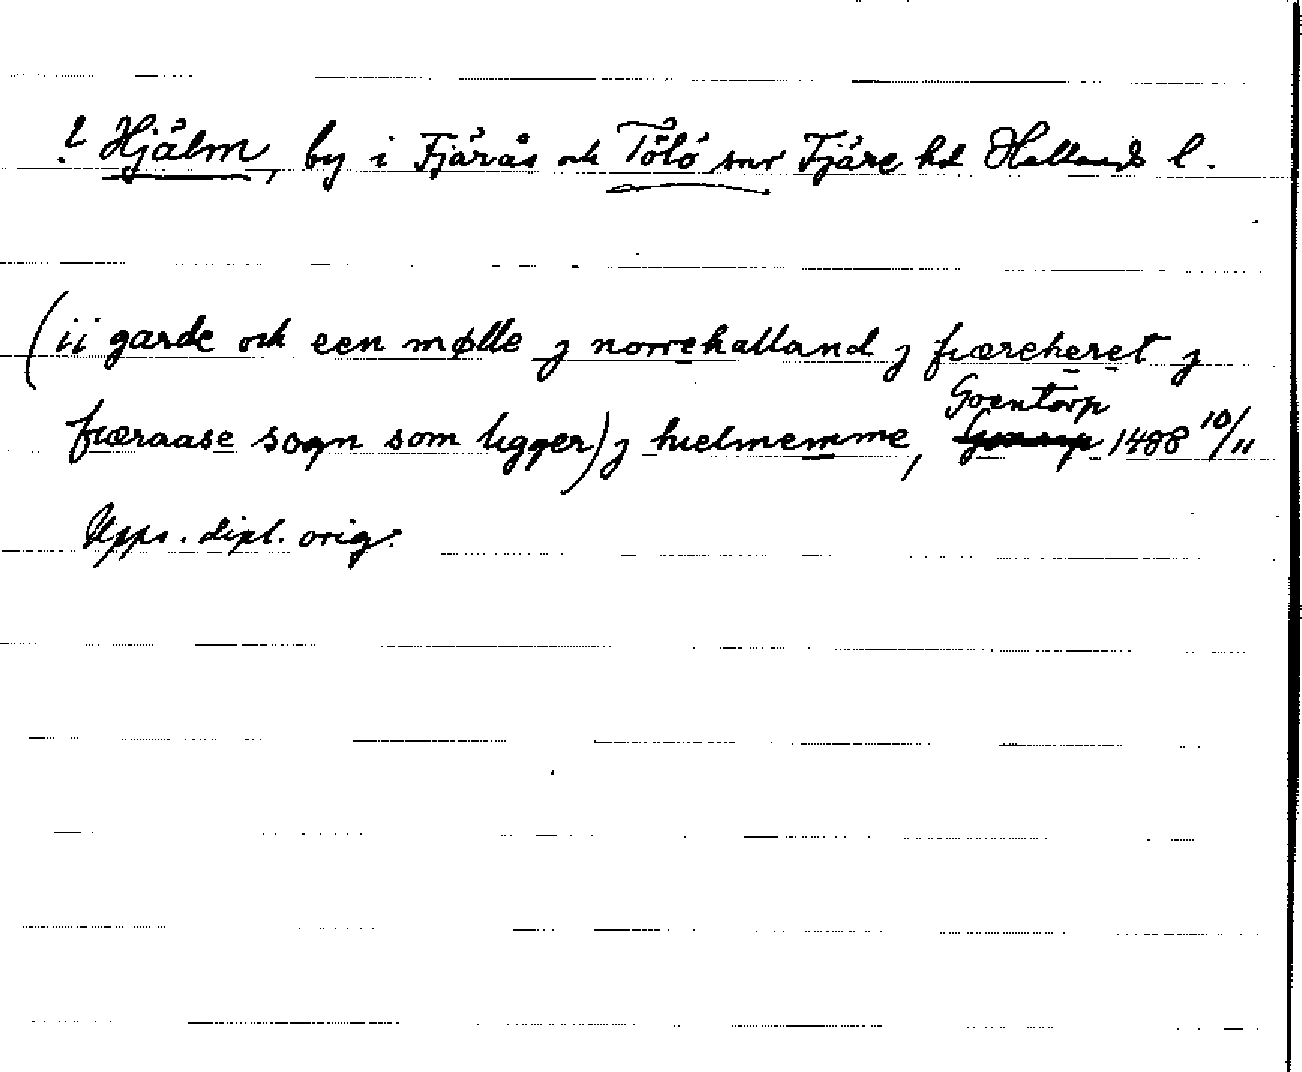 ? Hjälm, by i Fjärås och Tölö snr Fjäre hd Hallands l.
(ii garde och een mølle j norrehalland j fiæreheret j
fiæraase sogn som ligger) j hielmemme, Goentorp 1488 10/11
Upps. dipl. orig.